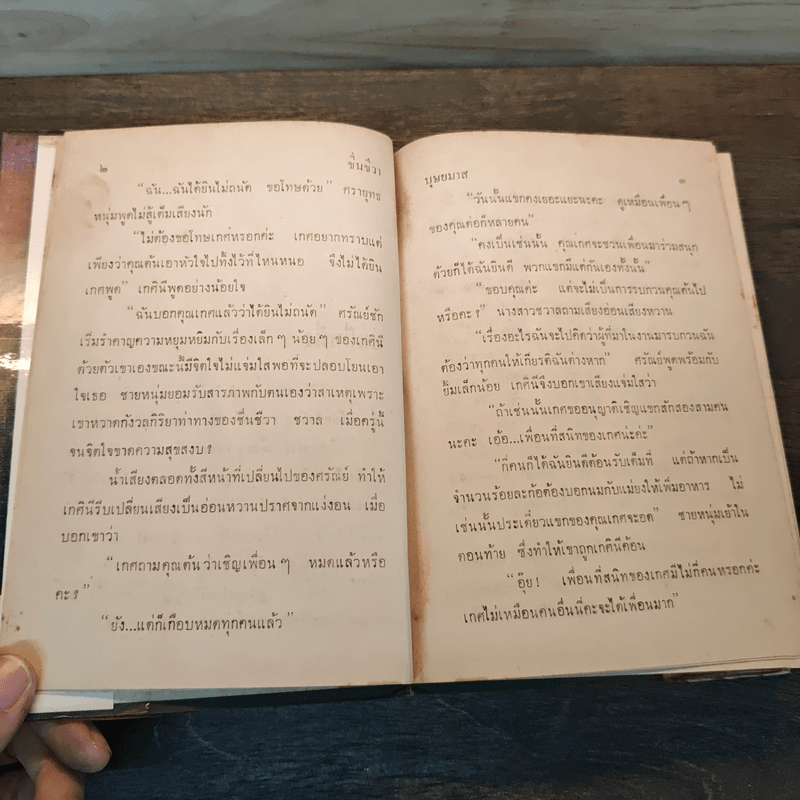 ๒ ชื่นชีวา
“ฉัน...ฉันได้ยินไม่ถนัด ขอโทษด้วย” ศรายุทธ
หนุ่มพูดไม่สู้เต็มเสียงนัก
“ไม่ต้องขอโทษเกศหรอกค่ะ เกศอยากทราบแต่
เพียงว่าคุณต้นเอาหัวใจไปทิ้งไว้ที่ไหนหนอ จึงไม่ได้ยิน
เกศพูด” เกศินีพูดอย่างน้อยใจ
“ฉันบอกคุณเกศแล้วว่าได้ยินไม่ถนัด” ศรัณย์ชัก
เริ่มรำคาญความหยุมหยิมกับเรื่องเล็กๆ น้อยๆ ของเกศินี
ด้วยตัวเขาเองขณะนี้มีจิตใจไม่แจ่มใสพอที่จะปลอบโยนเอา
ใจเธอ ชายหนุ่มยอมรับสารภาพกับตนเองว่าสาเหตุเพราะ
เขาหวาดกังวลกิริยาท่าทางของชื่นชีวา ชวาล เมื่อครู่นี้
จนจิตใจขาดความสุขสงบ?
น้ำเสียงตลอดทั้งสีหน้าที่เปลี่ยนไปของศรัณย์ ทำให้
เกศินีรีบเปลี่ยนเสียงเป็นอ่อนหวานปราศจากแง่งอน เมื่อ
บอกเขาว่า
“เกศถามคุณต้นว่าเชิญเพื่อนๆ หมดแล้วหรือ
คะ?”
“ยัง...แต่ก็เกือบหมดทุกคนแล้ว”
บุษยมาส ๓
“วันนั้นแขกคงเยอะแยะนะคะ ดูเหมือนเพื่อนๆ
ของคุณต่อก็หลายคน”
“คงเป็นเช่นนั้น คุณเกศจะชวนเพื่อนมาร่วมสนุก
ด้วยก็ได้ฉันยินดี พวกแขกมีแต่กันเองทั้งนั้น”
“ขอบคุณค่ะ แต่จะไม่เป็นการรบกวนคุณต้นไป
หรือคะ?” นางสาวชวาลถามเสียงอ่อนเสียงหวาน
“เรื่องอะไรฉันจะไปคิดว่าผู้ที่มาในงานมารบกวนฉัน
ต้องว่าทุกคนให้เกียรติฉันต่างหาก” ศรัณย์พูดพร้อมกับ
ยิ้มเล็กน้อย เกศินีจึงบอกเขาเสียงแจ่มใสว่า
“ถ้าเช่นนั้นเกศขออนุญาติเชิญแขกสักสองสามคน
นะคะ เอ้อ...เพื่อนที่สนิทของเกศน่ะค่ะ”
“กี่คนก็ได้ฉันยินดีต้อนรับเต็มที่ แต่ถ้าหากเป็น
จำนวนร้อยละก้อต้องบอกนมกับแม่ยงให้เพิ่มอาหาร ไม่
เช่นนั้นประเดี๋ยวแขกของคุณเกศจะอด” ชายหนุ่มเย้าใน
ตอนท้าย ซึ่งทำให้เขาถูกเกศินีค้อน
“อุ๊ย! เพื่อนที่สนิทของเกศมีไม่กี่คนหรอกค่ะ
เกศไม่เหมือนคนอื่นนี่คะจะได้เพื่อนมาก”